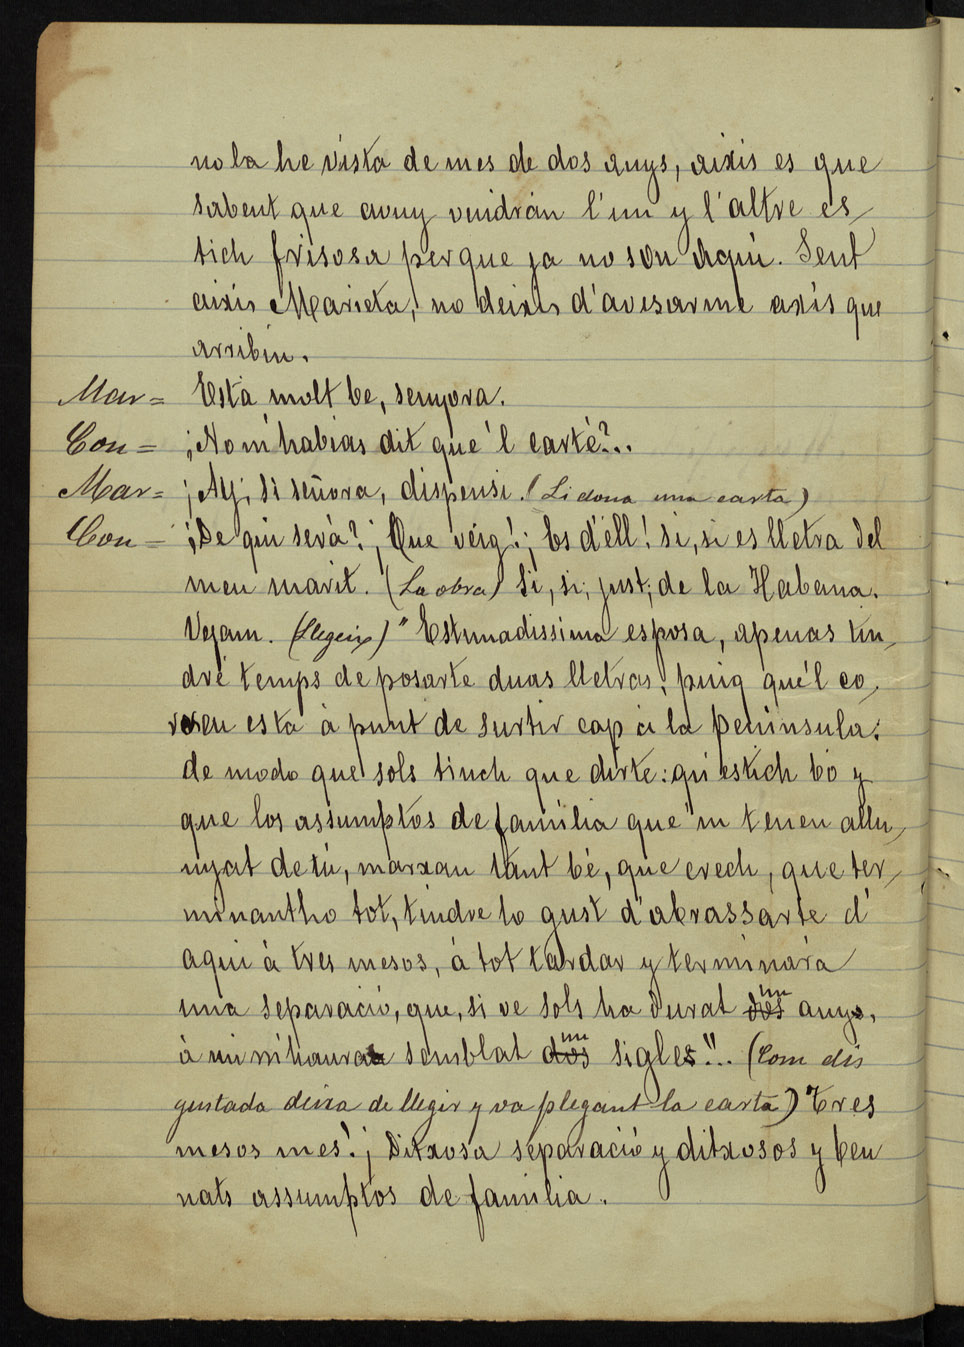 no la he vista de mes de dos anys, aixis es que
sabent que avuy vindrán l'un y l'altre es-
tich frisosa perque ja no son aquí. Sent
aixis Marieta, no deixis d'avesarme axís que
arribin.
Mar= Está molt be, senyora.
Con= ¡No m'habias dit que'l carté?..
Mar= ¡Ay, si señora, dispensi. (Li dona una carta)
Con= ¿De qui será? ¡Que veig! ¡Es d'éll! si, si es lletra del
meu marit. (La obra) Si, si, just; de la Habana.
Vejam. (Llegeix) "Estimadissima esposa, apenas tin-
dré temps de posarte duas lletras, puig que'l co-
rreu esta á punt de surtir cap á la peninsula;
de modo que sols tinch que dirte: qu'estich bó y
que los assumptos de familia que'm tenen allu-
nyat de tú, marxan tant bé, que crech, que ter-
minantho tot, tindre lo gust d'abrassarte d'
aqui á tres mesos, á tot tardar y terminará
una separació, que, si ve sols ha durat dos un anys,
á mi m'haura semblat dos un sigles"... (Com dis
gustada deixa de llegir y va plegant la carta) Tres
mesos mes! ¡Ditxosa separació y ditxosos y ben
nats assumptos de familia.